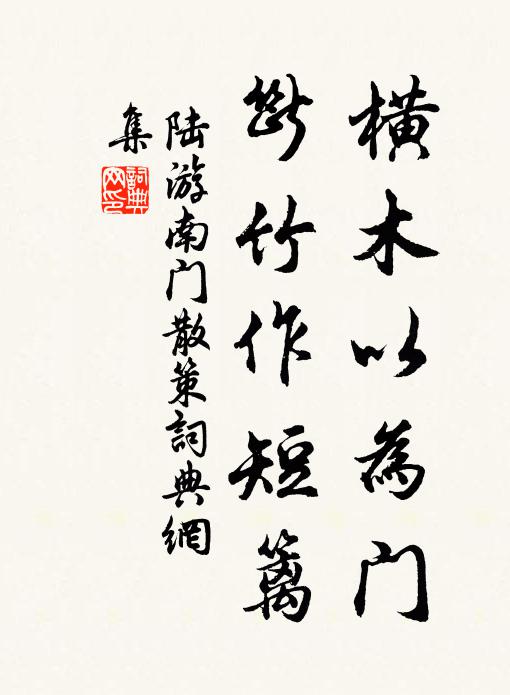 横木以為门
斷竹作短籬
陆游南门散策詞典網
集
詞典
网印